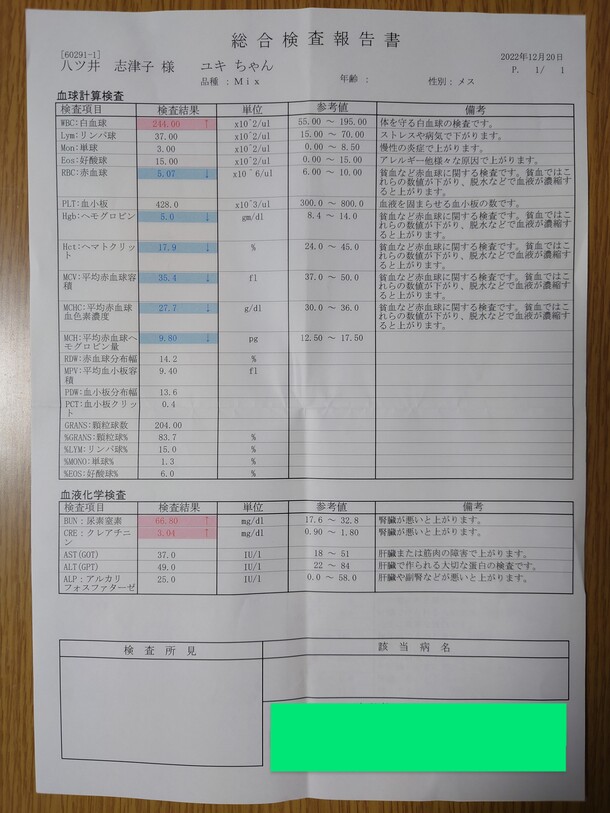 総合検査報告書
[60291-1]
八ツ井 志津子 様 ユキ ちゃん
2022年12月20日
品種 : Mix 年齢 : 性別 : メス
P. 1/ 1
血球計算検査
検査項目 検査結果 単位 参考値 備考
WBC:白血球 244.00 ↑ x10^2/ul 55.00 ～ 195.00 体を守る白血球の検査です。
Lym:リンパ球 37.00 x10^2/ul 15.00 ～ 70.00 ストレスや病気で下がります。
Mon:単球 3.00 x10^2/ul 0.00 ～ 8.50 慢性の炎症で上がります。
Eos:好酸球 15.00 x10^2/ul 0.00 ～ 15.00 アレルギー他様々な原因で上がります。
RBC:赤血球 5.07 ↓ x10^6/ul 6.00 ～ 10.00 貧血など赤血球に関する検査です。貧血ではこ
れらの数値が下がり、脱水などで血液が濃縮す
ると上がります。
PLT:血小板 428.0 x10^3/ul 300.0 ～ 800.0 血液を固まらせる血小板の数です。
Hgb:ヘモグロビン 5.0 ↓ gm/dl 8.4 ～ 14.0 貧血など赤血球に関する検査です。貧血ではこ
れらの数値が下がり、脱水などで血液が濃縮す
ると上がります。
Hct:ヘマトクリッ
ト 17.9 ↓ % 24.0 ～ 45.0 貧血など赤血球に関する検査です。貧血ではこ
れらの数値が下がり、脱水などで血液が濃縮す
ると上がります。
MCV:平均赤血球容
積 35.4 ↓ fl 37.0 ～ 50.0 貧血など赤血球に関する検査です。貧血ではこ
れらの数値が下がり、脱水などで血液が濃縮す
ると上がります。
MCHC:平均赤血球
血色素濃度 27.7 ↓ g/dl 30.0 ～ 36.0 貧血など赤血球に関する検査です。貧血ではこ
れらの数値が下がり、脱水などで血液が濃縮す
ると上がります。
MCH:平均赤血球ヘ
モグロビン量 9.80 ↓ pg 12.50 ～ 17.50
RDW:赤血球分布幅 14.2 %
MPV:平均血小板容
積 9.40 fl
PDW:血小板分布幅 13.6
PCT:血小板クリッ
ト 0.4
GRANS:顆粒球数 204.00
%GRANS:顆粒球% 83.7 %
%LYM:リンパ球% 15.0 %
%MONO:単球% 1.3 %
%EOS:好酸球% 6.0 %
血液化学検査
検査項目 検査結果 単位 参考値 備考
BUN：尿素窒素 66.80 ↑ mg/dl 17.6 ～ 32.8 腎臓が悪いと上がります。
CRE：クレアチニ
ン 3.04 ↑ mg/dl 0.90 ～ 1.80 腎臓が悪いと上がります。
AST(GOT) 37.0 IU/l 18 ～ 51 肝臓または筋肉の障害で上がります。
ALT(GPT) 49.0 IU/l 22 ～ 84 肝臓で作られる大切な蛋白の検査です。
ALP：アルカリ
フォスファターゼ 25.0 IU/l 0.0 ～ 58.0 肝臓や副腎などが悪いと上がります。
検査所見 該当病名